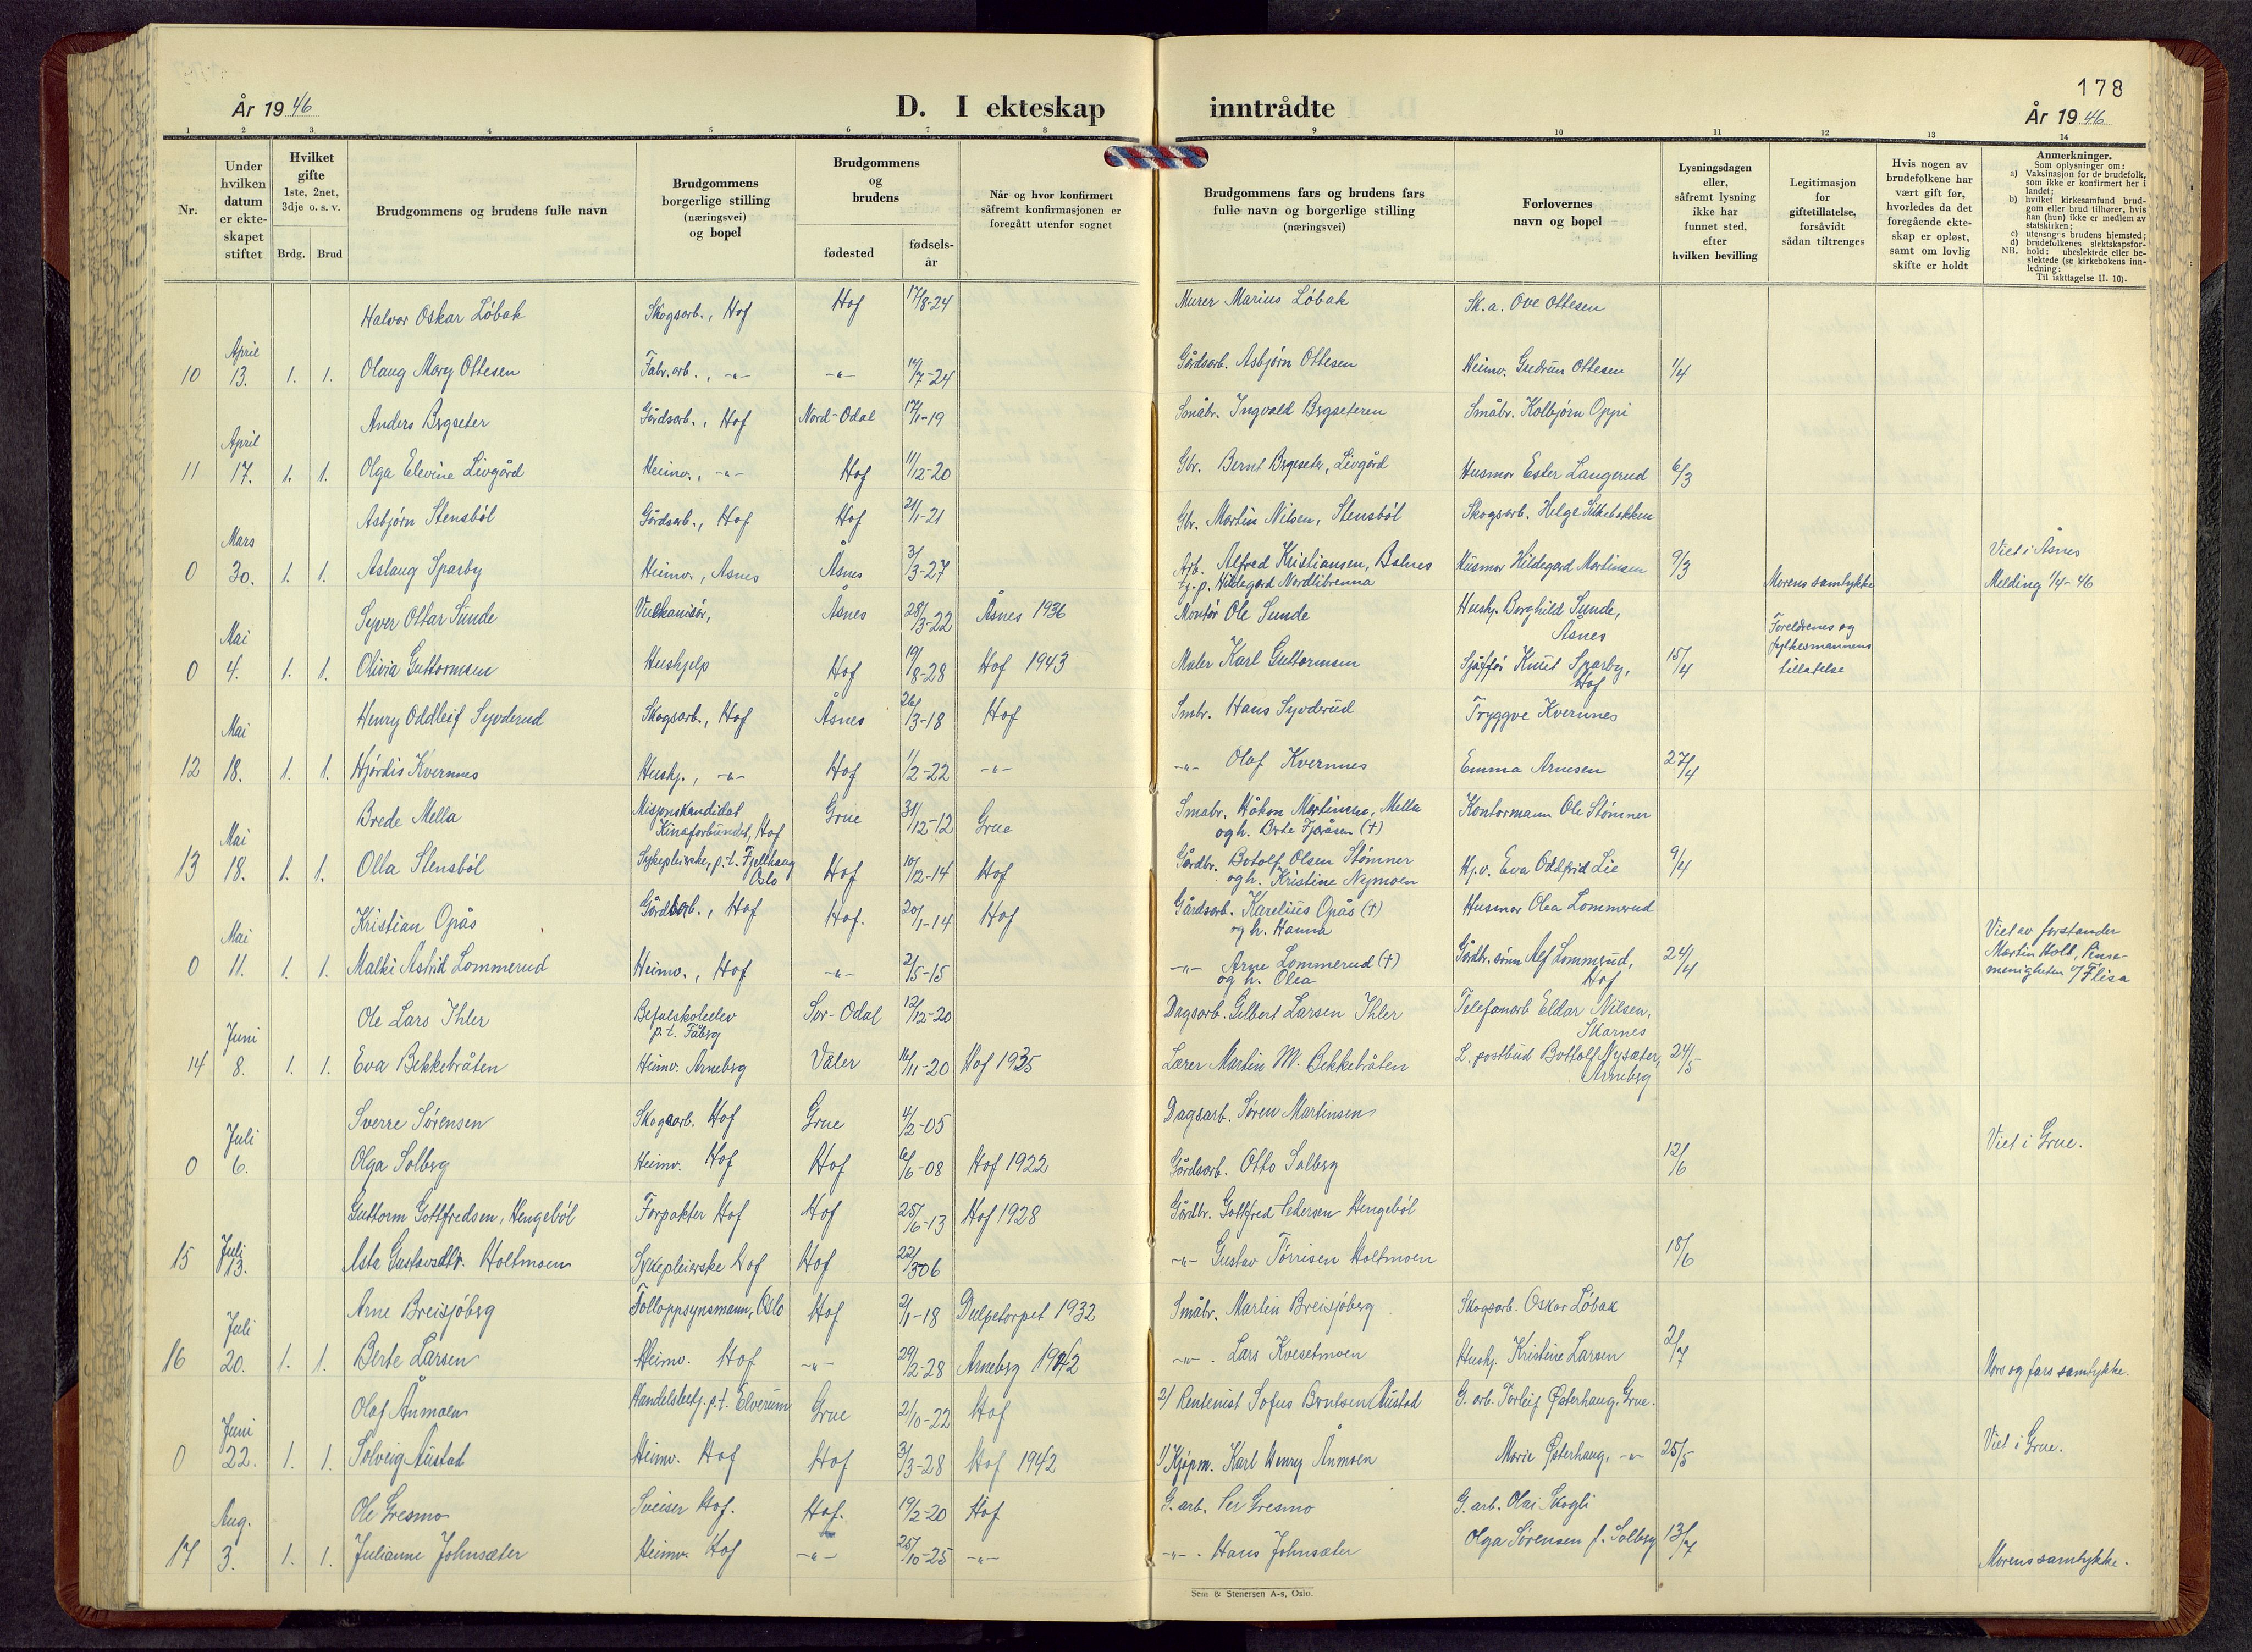 178
År 1946
D. I ekteskap inntrådte
År 1946
1 2 3 4 5 6 7 8 9 10 11 12 13 14
Nr.
Under hvilken datum er ekteskapet stiftet
Hvilket gifte
1ste, 2net, 3dje o. s. v.
Brdg. Brud
Brudgommens og brudens fulle navn
Brudgommens borgerlige stilling (næringsvei) og bopel
Brudgommens og brudens
fødested
fødsels-år
Når og hvor konfirmert såfremt konfirmasjonen er foregått utenfor sognet
Brudgommens fars og brudens fars fulle navn og borgerlige stilling (næringsvei)
Forlovernes navn og bopel
Lysningsdagen eller, såfremt lysning ikke har funnet sted, efter hvilken bevilling
Legitimasjon for giftetillatelse, forsåvidt sådan tiltrenges
Hvis nogen av brudefolkene har vært gift før, hvorledes da det foregående ekteskap er opløst, samt om lovlig skifte er holdt
Anmerkninger.
Som oplysninger om:
a) Vaksinasjon for de brudefolk, som ikke er konfirmert her i landet;
b) hvilket kirkesamfund brudgom eller brud tilhører, hvis han (hun) ikke er medlem av statskirken;
c) utensogns brudens hjemsted;
d) brudefolkenes slektskapsforhold: ubeslektede eller beslektede (se kirkebokens innledning:
NB. Til iakttagelse II. 10).
Halvor Oskar Löbak Skogsarb., Hof Hof 17/8-24 Murer Marius Löbak Sk.a. Ove Ottesen
10 April 13. 1. 1. Olaug Mary Ottesen Fabr.arb., -"- -"- 14/7-24 Gårdsarb. Asbjørn Ottesen Heimv. Gudrun Ottesen 1/4
Anders Bergseter Gårdsarb., Hof Nord-Odal 17/1-19 Småbr. Ingvald Bergseteren Småbr. Kolbjørn Oppi
11 April 17. 1. 1. Olga Elevine Livgård Heimv., -"- Hof 11/12-20 Gbr. Bernt Bergseter, Livgård Husmor Ester Langerud 6/3
Asbjørn Stensböl Gårdsarb., Hof Hof 21/1-21 Gbr. Martin Nilsen, Stensböl Skogsarb. Helge Silkebakken
0 Mars 30. 1. 1. Aslaug Sparby Heimv., Åsnes Åsnes 3/3-27 Arb. Alfred Kristiansen, Balnes Husmor Hildegard Martinsen 9/3 Viet i Åsnes
t.j.p. Hildegard Nordlibrenna Morens samtykke Melding 1/4-46
Syver Ottar Sunde Vulkanisör, Åsnes 28/3-22 Åsnes 1936 Montör Ole Sunde Hushj. Borghild Sunde, Åsnes
0 Mai 4. 1. 1. Olivia Guttormsen Hushjelp Hof 19/8-28 Hof 1943 Maler Karl Guttormsen Sjåffør Knut Sparby, Hof 15/4 Foreldrenes og fylkesmannens tillatelse
Henry Oddleif Syvderud Skogsarb., Hof Åsnes 26/3-18 Hof Smbr. Hans Syvderud Tryggve Kvernnes
12 Mai 18. 1. 1. Hjördis Kvernnes Hushj., -"- Hof 1/2-22 -"- -"- Olaf Kvernnes Emma Arnesen 27/4
Brede Mella Misjonskandidat Kinaforbundet, Hof Grue 31/12-12 Grue Småbr. Håkon Martinsen, Mella og h. Berte Fjeråsen (+) Kontormann Ole Stömner
13 Mai 18. 1. 1. Olla Stensböl Sykepleierske, p.t. Fjellhaug Oslo Hof 10/12-14 Hof Gårdbr. Botolf Olsen Stömner og h. Kristine Nymoen Hj.v. Eva Oddfrid Lie 9/4
Kristian Opås Gårdsarb., Hof Hof. 20/1-14 Hof Gårdsarb. Karelius Opås (+) og h. Hanna Husmor Olea Lommerud
0 Mai 11. 1. 1. Malki Astrid Lommerud Heimv., Hof -"- 2/5-15 -"- Arne Lommerud (+) og h. Olea Gårdbr. sønn Alf Lommerud, Hof 24/4 Viet av forstander Martin Holt, Pinsemenigheten v/ Flisa
Ole Lars Ihler Befalskoleelev p.t. Fåberg Sør-Odal 12/12-20 Dagsarb. Gilbert Larsen Ihler Telefonarb Eldar Nilsen, Skarnes
14 Juni 8. 1. 1. Eva Bekkebråten Heimv. Arneberg Våler 16/11-20 Hof 1935 Lærer Martin M. Bekkebråten L. postbud Bottolf Nysæter, Arneberg 24/5
Sverre Sørensen Skogsarb. Hof Grue 4/2-05 Dagsarb. Søren Martinsen
0 Juli 6. Olga Solberg Heimv. Hof Hof 6/6-08 Hof 1922 Gårdsarb. Otto Solberg 12/6 Viet i Grue.
Guttorm Gottfredsen, Hengeböl Forpakter Hof Hof 25/6-13 Hof 1928 Gårdbr. Gottfred Pedersen Hengeböl
15 Juli 13. Asta Gustavsdtr. Holtmoen Sykepleierske Hof Hof 22/306 -"- Gustav Tørrisen Holtmoen 18/6
Arne Breisjöberg Tolloppsynsmann, Oslo Hof 2/1-18 Dulpetorpet 1932 Småbr. Martin Breisjöberg Skogsarb. Oskar Löbak
16 Juli 20. 1. 1. Berte Larsen Heimv. Hof -"- 29/2-28 Arneberg 1942 -"-. Lars Kvesetmoen Hushj. Kristine Larsen 2/7 Mors og fars samtykke.
Olaf Ånmoen Handelsbetj. p.t. Elverum Grue 2/10-22 Hof 2/ Rentenist Sofus Berntsen Austad G. arb. Torleif Østerhaug, Grue.
0 Juni 22. 1. 1. Solveig Austad Heimv. Hof Hof 3/3-28 Hof 1942 1/ Kjøpm. Karl Henry Ånmoen Marie Østerhaug, -"- 25/5 Viet i Grue.
Ole Gresmo Sveiser Hof. Hof. 19/2-20 Hof G. arb. Per Gresmo G. arb. Olai Skogli
17 Aug. 3. 1. 1. Julianne Johnsæter Heimv. Hof -"- 25/10-25 -"- -"-. Hans Johnsæter Olga Sørensen f. Solberg 13/7 Morens samtykke.
Sem & Stenersen A-s, Oslo.